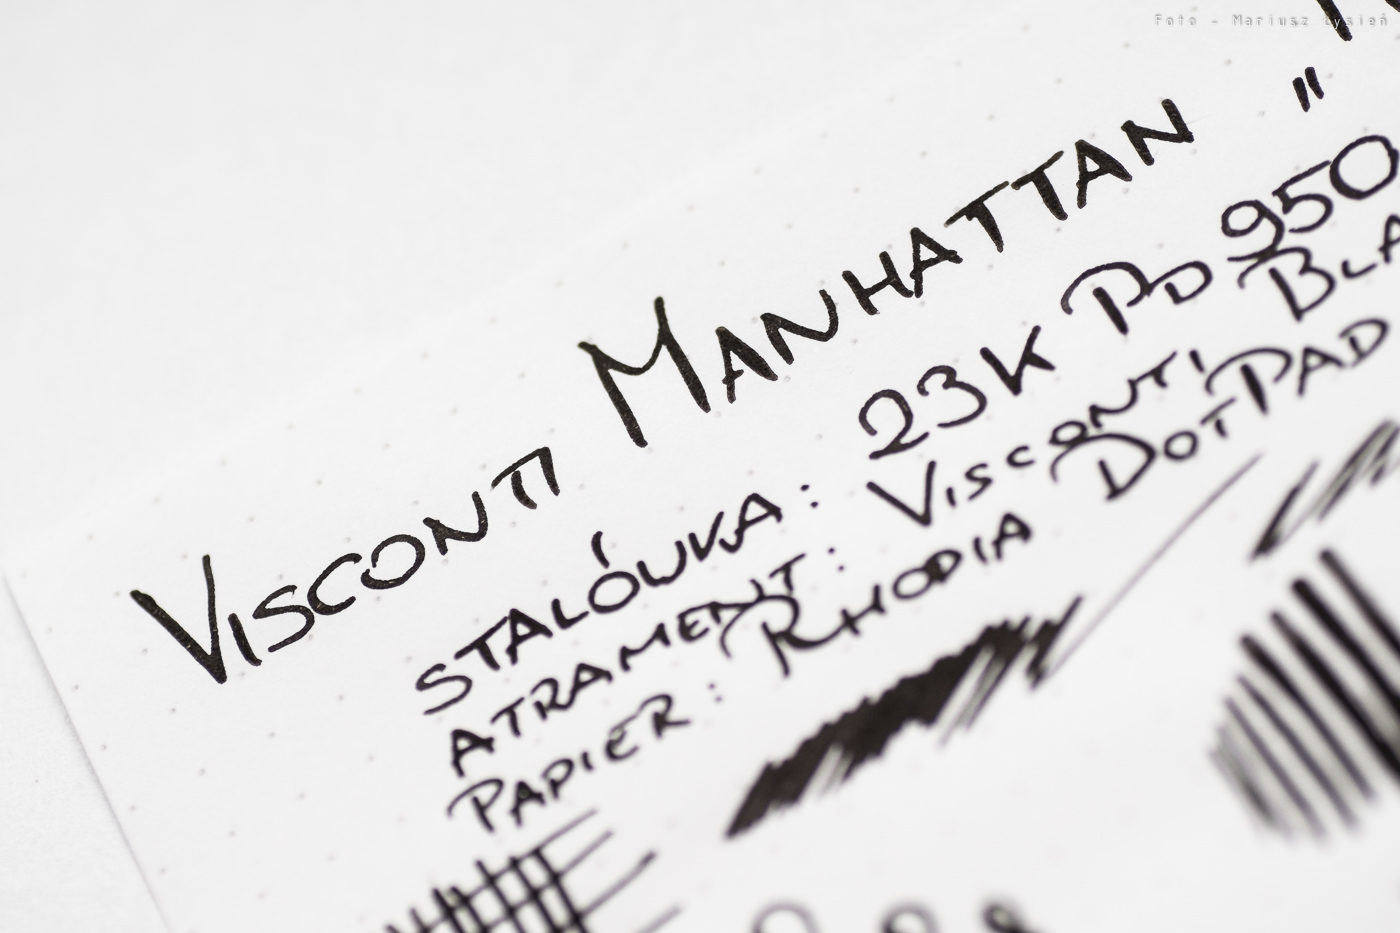 Foto - Mariusz Łysień
VISCONTI MANHATTAN "
STALÓWKA: 23K PD 950
ATRAMENT: VISCONTI BLA
PAPIER: RHODIA DOTPAD